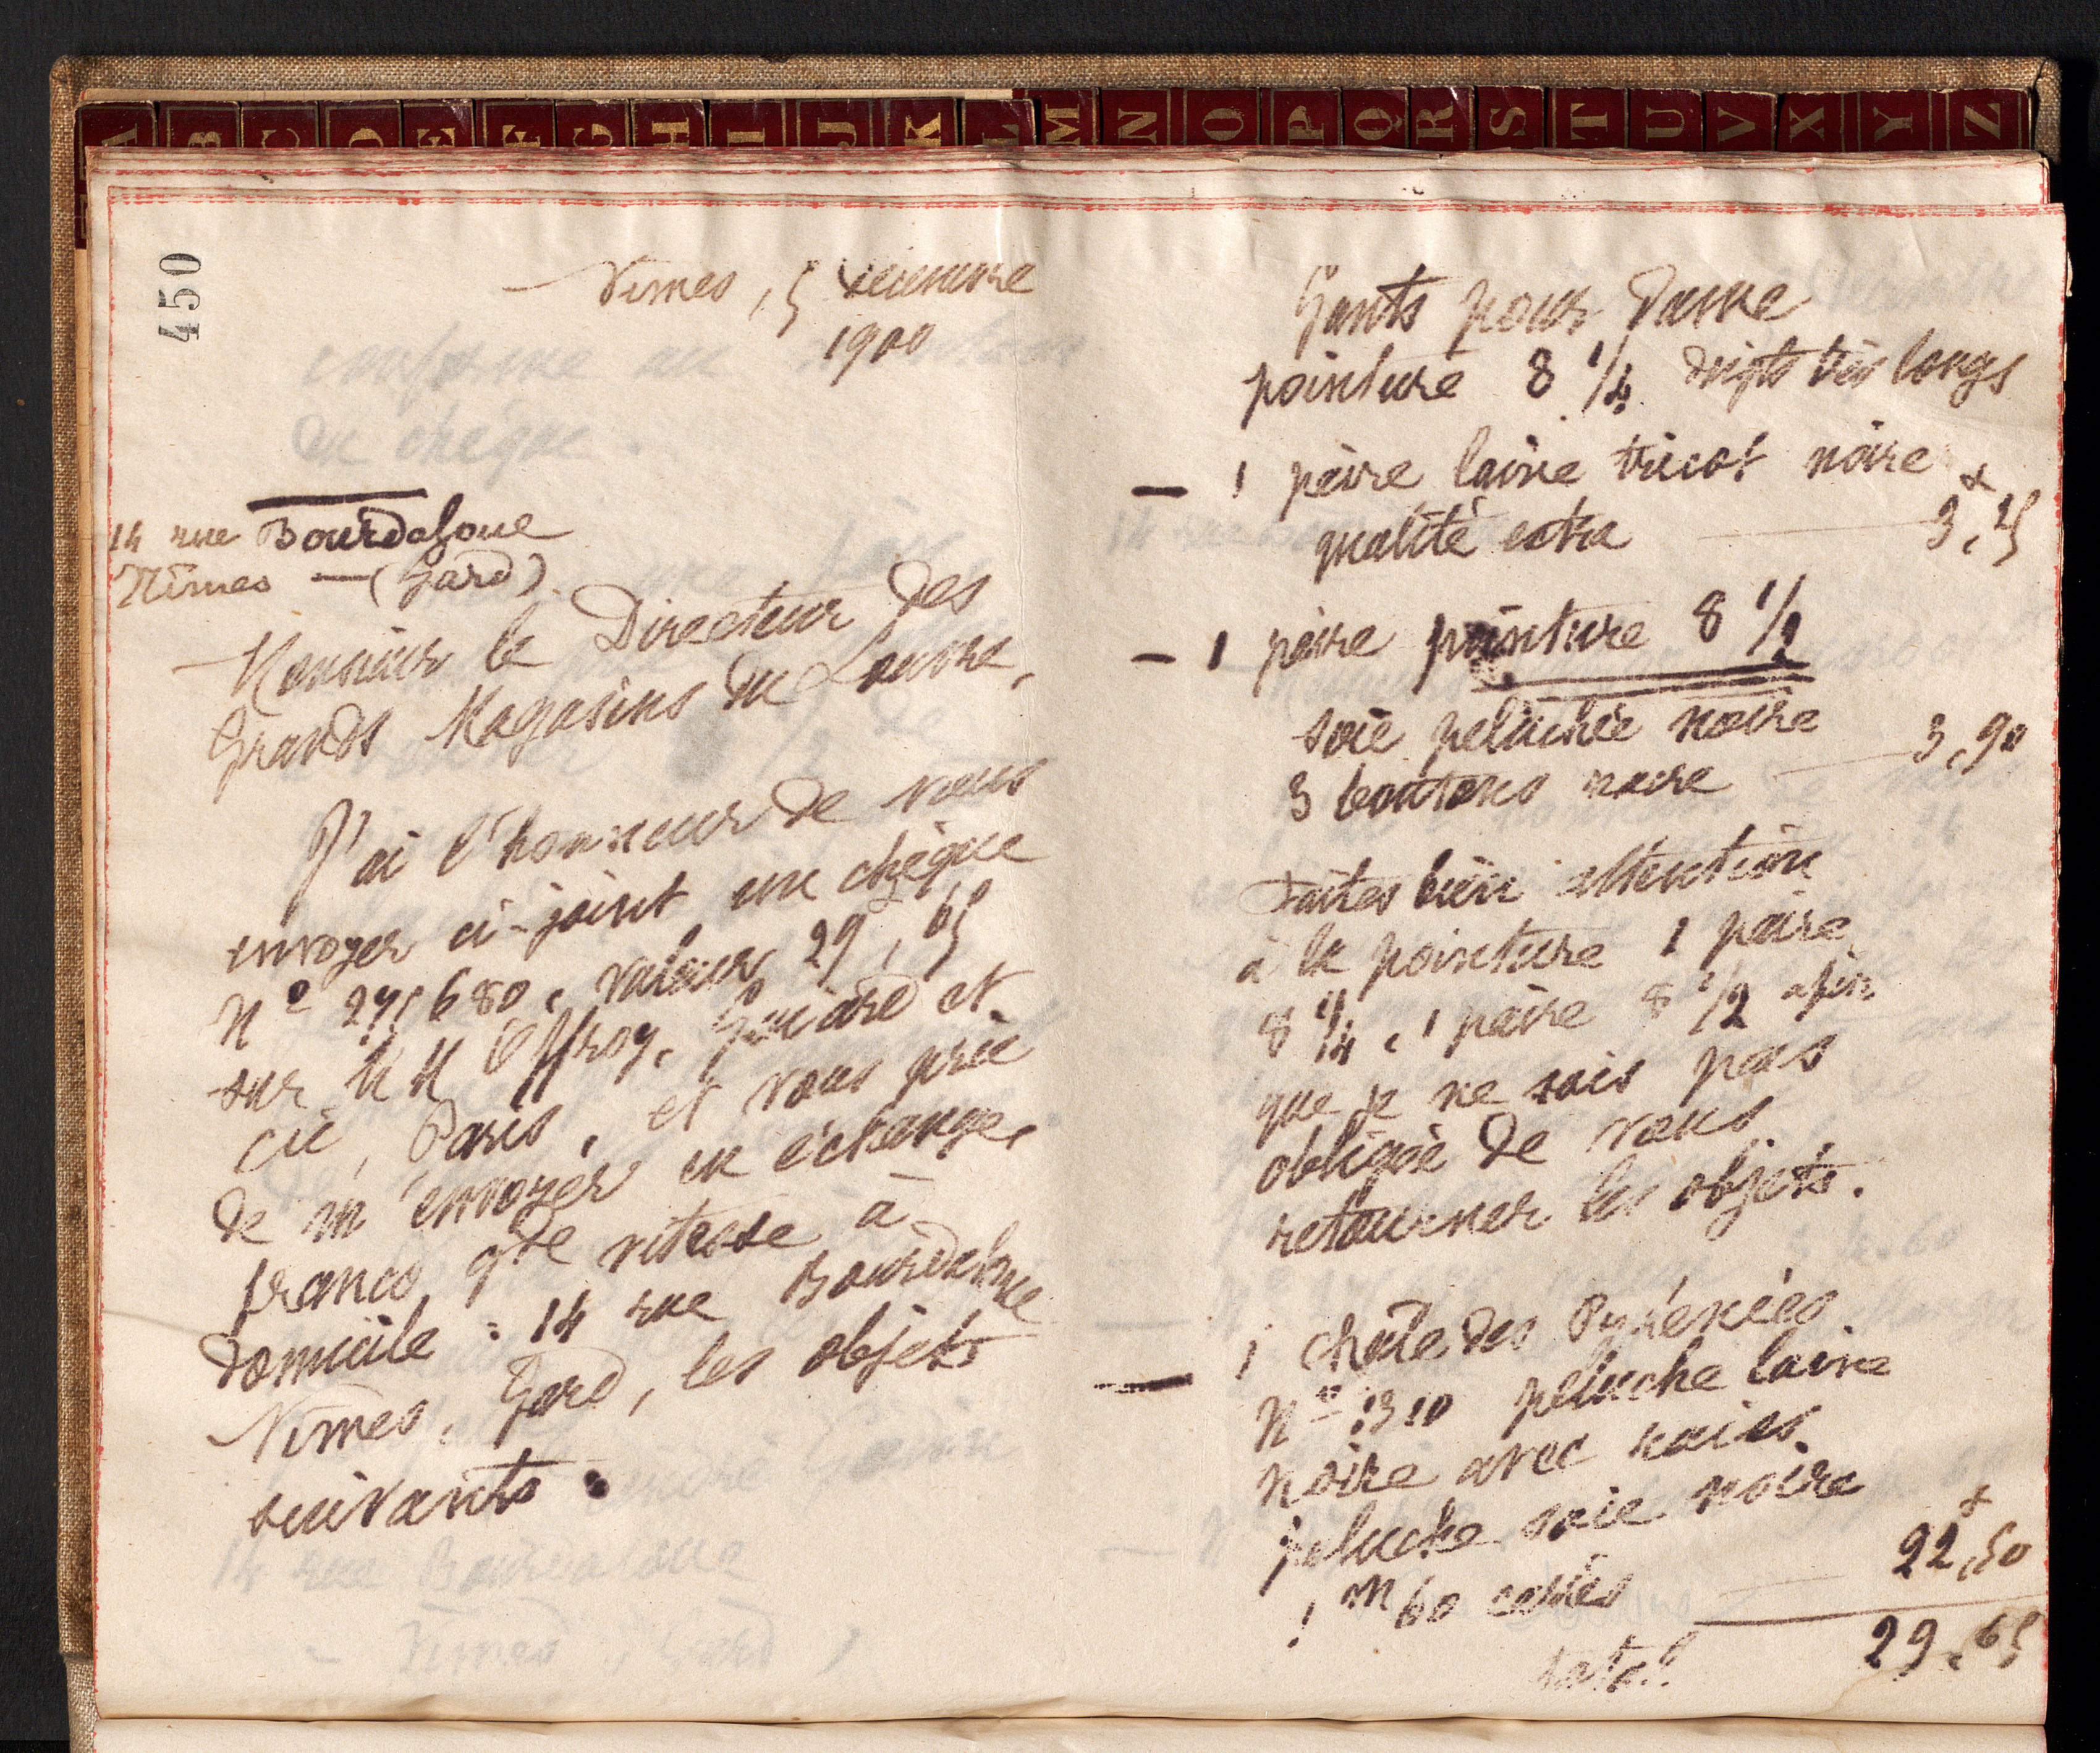 A B C D E F G H I J K L M N O P Q R S T U V X Y Z
450
Nîmes, 5 décembre
1900
14 rue Bourdaloue
Nîmes — (Gard)
Monsieur le Directeur des
Grands Magasins du Louvre,
J'ai l'honneur de vous
envoyer ci-joint un chèque
N° 275680, valeur 29,65
sur MM Offroy, Guiard et
Cie, Paris, et vous prie
de m'envoyer en échange,
franco gde vitesse à
domicile : 14 rue Bourdaloue
Nîmes, Gard, les objets
suivants.
Gants pour Dame
pointure 8 1/4 doigts très longs
— 1 paire laine tricot noire
qualité extra — 3,25
— 1 paire pointure 8 1/2
soie peluchée noire
3 boutons noire — 3,90
Faites bien attention
à la pointure 1 paire
8 1/4, 1 paire 8 1/2 afin
que je ne sois pas
obligée de vous
retourner les objets.
— 1 châle des Pyrénées
N° 1310 peluche laine
noire avec raies
peluche soie noire
1 m 60 carrés — 22,50
total 29,65